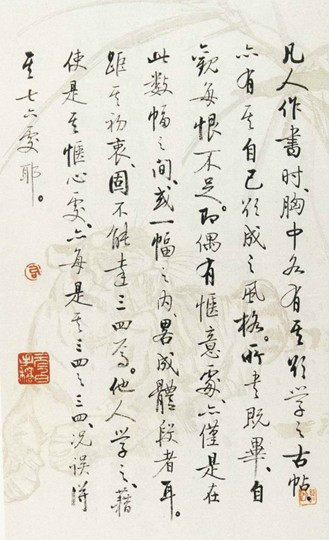 凡人作書时、胸中各有其欲學之古帖、
亦有其自己欲成之風格。所書既畢、自
觀每恨不足。即偶有惬意處、亦僅是在
此数幅之间、或一幅之内、畧成體段者耳。
距其初衷、固不能達三四焉。他人學之、藉
使是其惬心處、亦每是其三四之三四、况误得
其七六處耶。